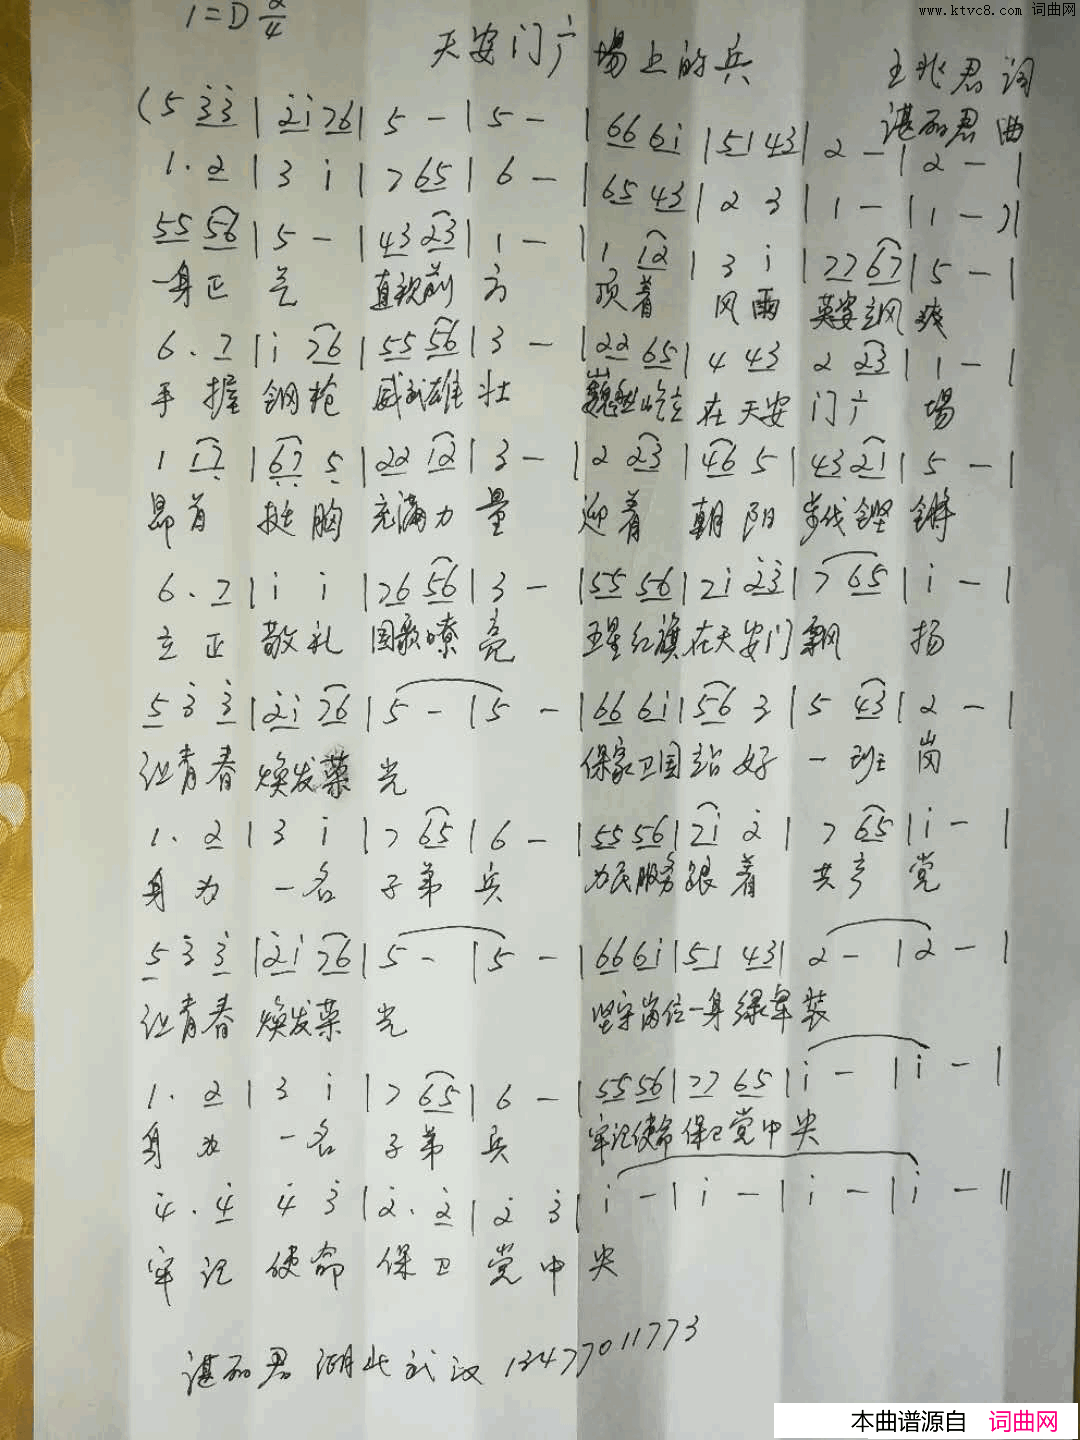 www.ktvc8.com 词曲网
1=D 2/4
天安门广場上的兵
王兆君 词
谌丽君 曲
(5 3̇3̇ | 2̇i76 | 5 - | 5 - | 66 6i | 51 43 | 2 - | 2 - |
1. 2 | 3 i | 7 65 | 6 - | 65 43 | 2 3 | 1 - | 1 - )|
55 56 | 5 - | 43 23 | 1 - | 1 12 | 3 i | 77 67 | 5 - |
一身正 气 直视前 方 顶着 风雨 英姿飒 爽
6. 7 | i 76 | 55 56 | 3 - | 22 65 | 4 43 2 23 | 1 - |
手 握 钢枪 威武雄 壮 巍然屹立 在 天安 门广 場
1 17 | 67 5 | 22 12 | 3 - | 2 23 | 46 5 | 43 21 | 5 - |
昂首 挺胸 充满力 量 迎着 朝阳 步伐铿 锵
6. 7 | i i | 76 56 | 3 - | 55 56 | 7i 2̇3̇ | 7 65 | i - |
立 正 敬礼 国歌嘹 亮 五星红旗在天安门飘 扬
5 3̇ 3̇ | 2̇i 76 | 5 - | 5 - | 66 6i | 56 3 | 5 43 | 2 - |
让青春 焕发荣 光 保家卫国站 好 一 班 岗
1. 2 | 3 i | 7 65 | 6 - | 55 56 | 7i 2̇ | 7 65 | i - |
身 为 一名 子弟 兵 为民服务跟 着 共产 党
5 3̇ 3̇ | 2̇i 76 | 5 - | 5 - | 66 6i | 51 43 | 2 - | 2 - |
让青春 焕发荣 光 坚守岗位一身绿军装
1. 2 | 3 i | 7 65 | 6 - | 55 56 | 77 65 | i - | i - |
身 为 一名 子弟 兵 牢记使命保卫党中央
4̇. 4̇ 4̇ 3̇ | 2̇. 2̇ | 2̇ 3̇ | i - | i - | i - | i - ‖
牢 记 使命 保 卫 党中 央
谌丽君 湖北武汉 13477011773
本曲谱源自 词曲网